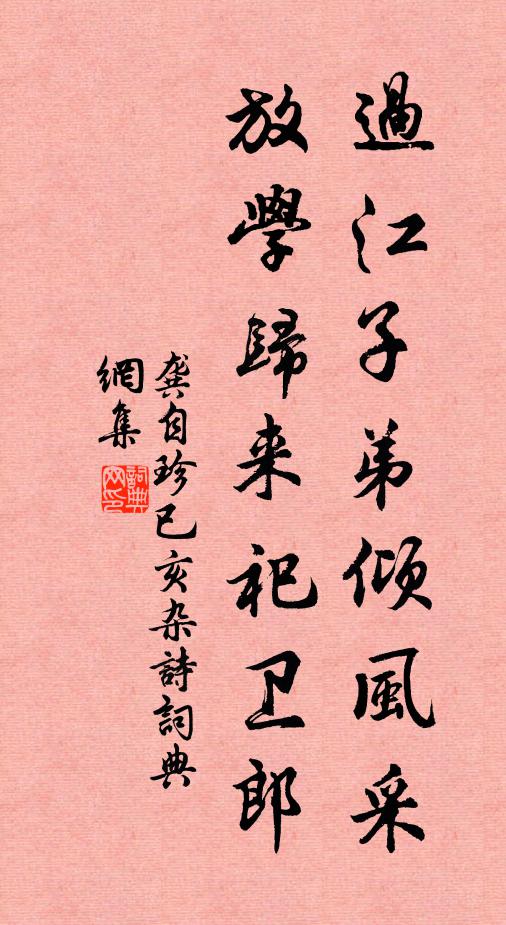 過江子弟傾風采
放學歸来祀卫郎
龔自珍己亥杂詩詞典
網集
詞典網印